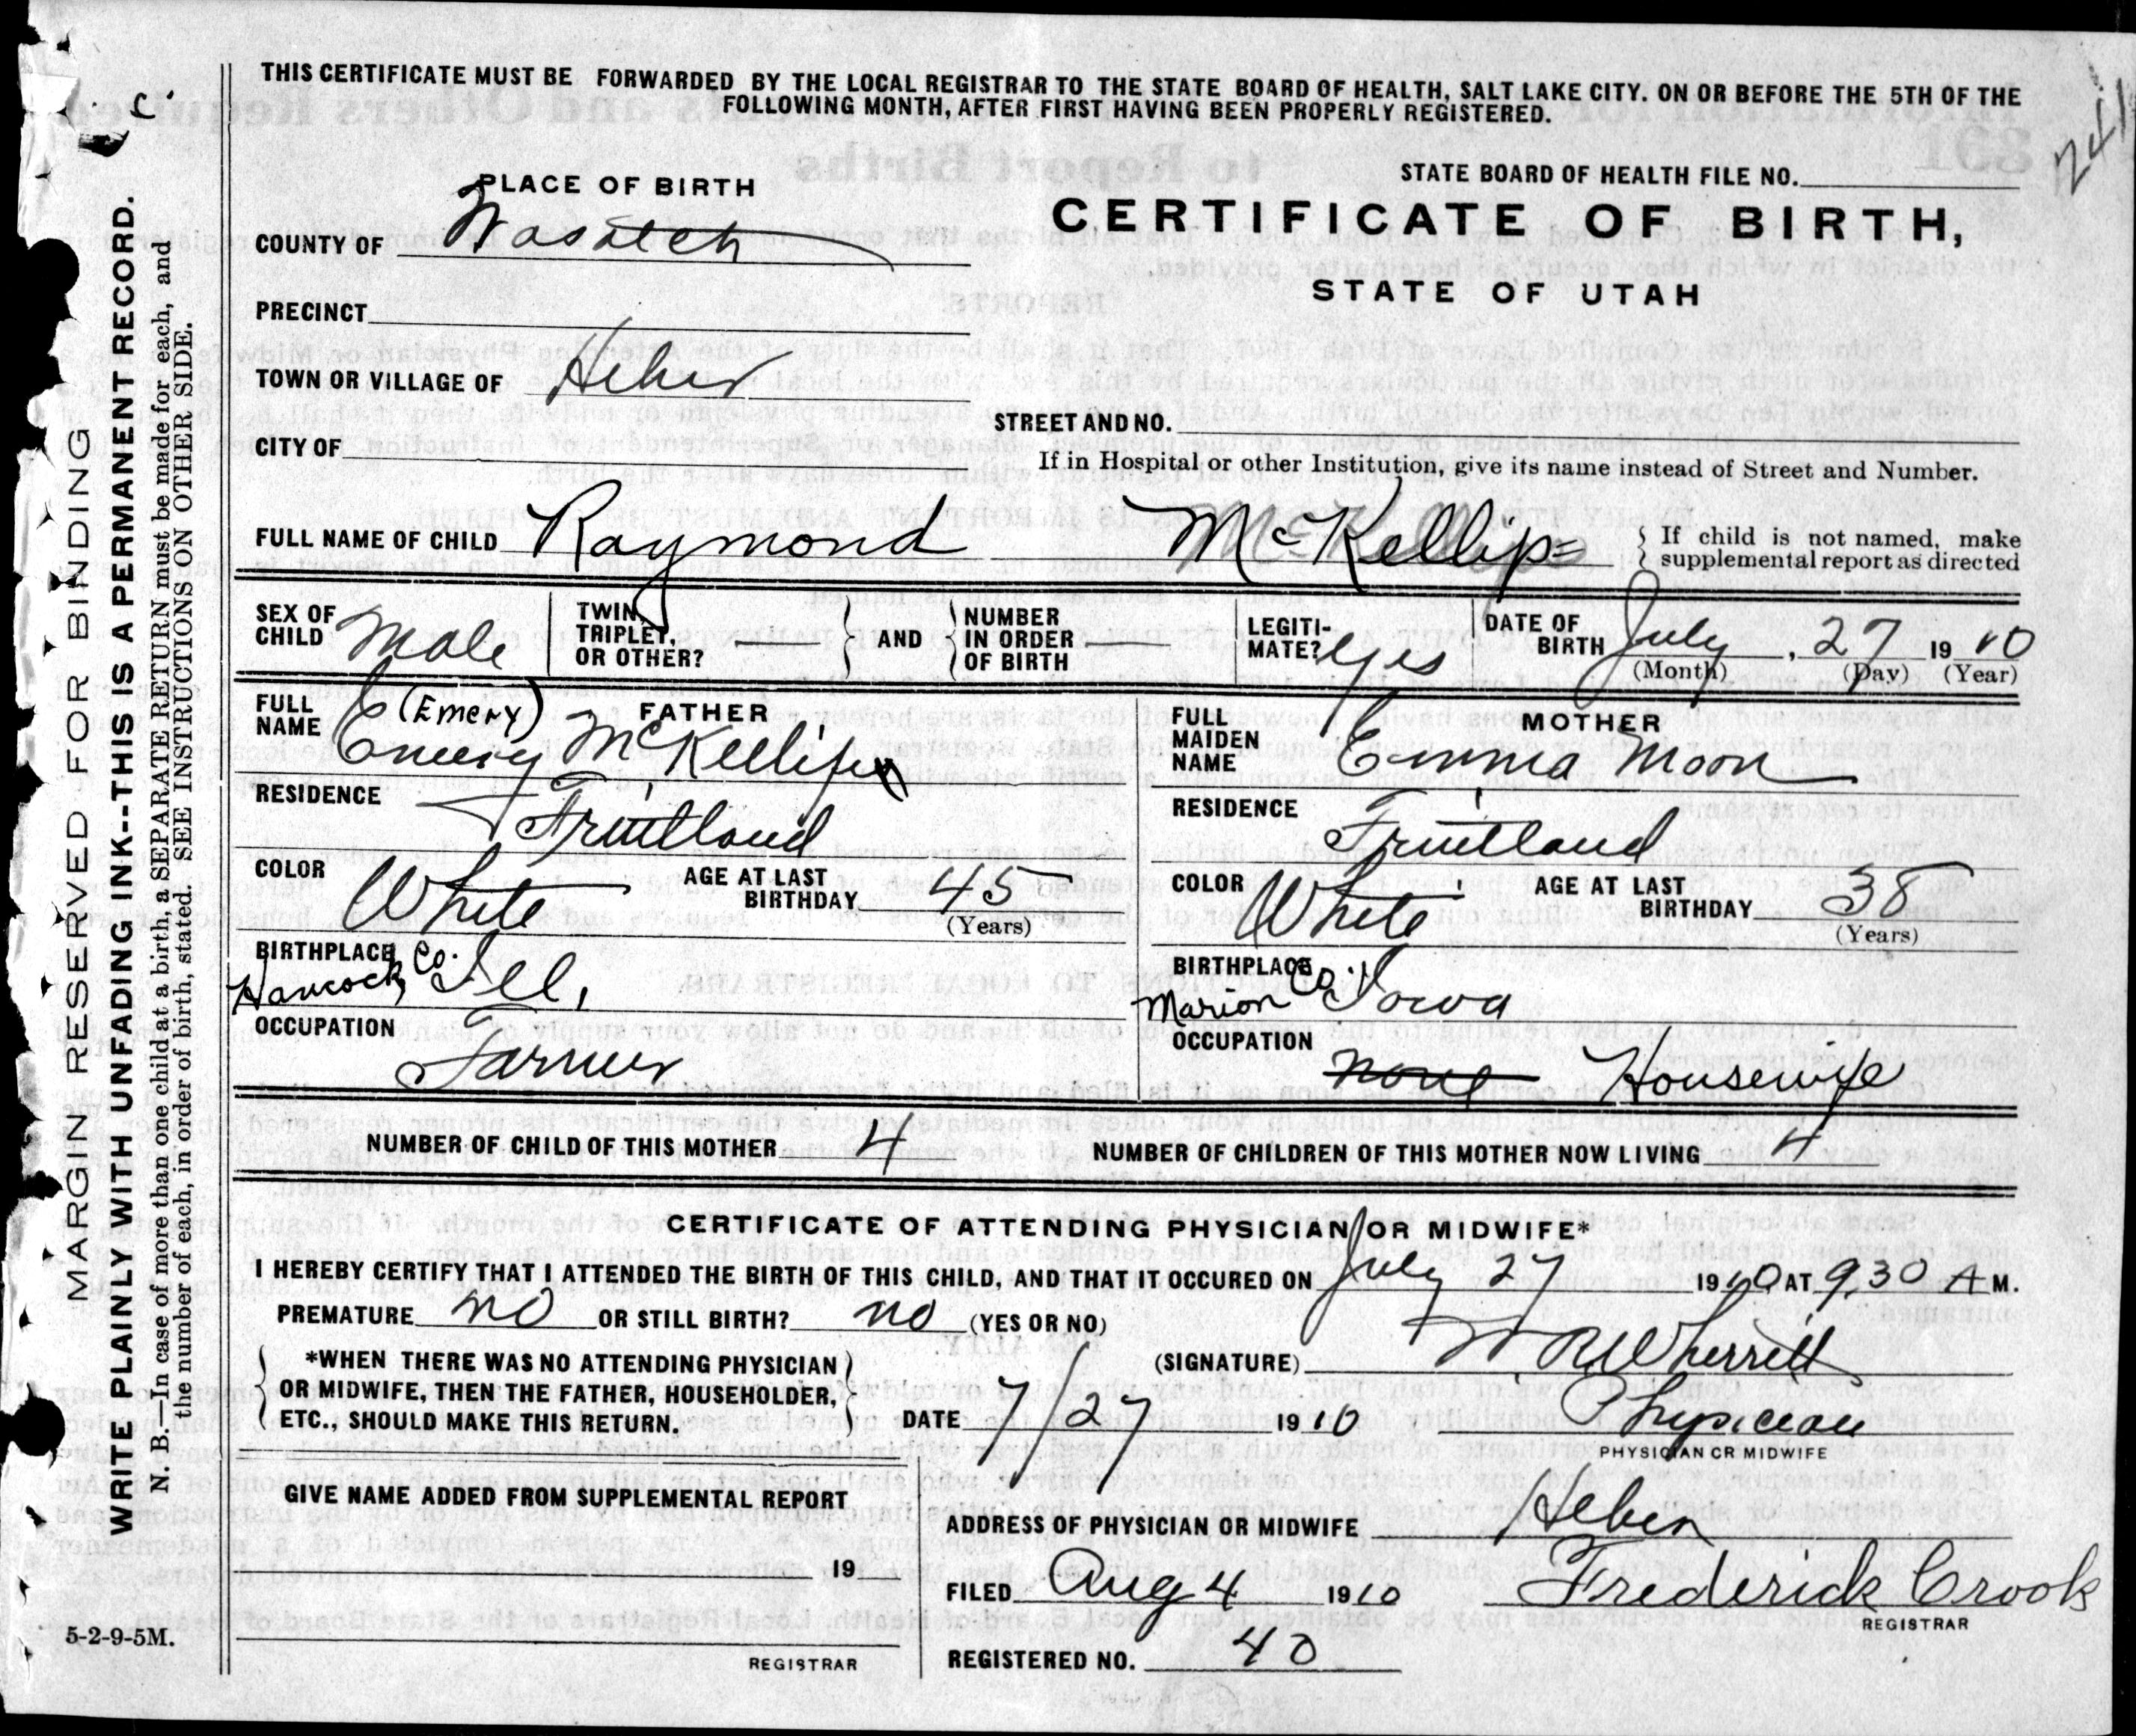 THIS CERTIFICATE MUST BE FORWARDED BY THE LOCAL REGISTRAR TO THE STATE BOARD OF HEALTH, SALT LAKE CITY. ON OR BEFORE THE 5TH OF THE
FOLLOWING MONTH, AFTER FIRST HAVING BEEN PROPERLY REGISTERED.
MARGIN RESERVED FOR BINDING
WRITE PLAINLY WITH UNFADING INK--THIS IS A PERMANENT RECORD.
N. B.—In case of more than one child at a birth, a SEPARATE RETURN must be made for each, and
the number of each, in order of birth, stated. SEE INSTRUCTIONS ON OTHER SIDE.
5-2-9-5M.
PLACE OF BIRTH
COUNTY OF Wasatch
PRECINCT
TOWN OR VILLAGE OF Heber
CITY OF
STATE BOARD OF HEALTH FILE NO.
CERTIFICATE OF BIRTH,
STATE OF UTAH
STREET AND NO.
If in Hospital or other Institution, give its name instead of Street and Number.
FULL NAME OF CHILD Raymond McKellips
If child is not named, make
supplemental report as directed
SEX OF CHILD Male
TWIN, TRIPLET, OR OTHER? —
AND
NUMBER IN ORDER OF BIRTH —
LEGITIMATE? yes
DATE OF BIRTH July, 27 1910
(Month) (Day) (Year)
FATHER
FULL NAME (Emery)
Emery McKellips
RESIDENCE Fruitland
COLOR White
AGE AT LAST BIRTHDAY 45
(Years)
BIRTHPLACE Hancock Co. Ill,
OCCUPATION Farmer
MOTHER
FULL MAIDEN NAME Emma Moon
RESIDENCE Fruitland
COLOR White
AGE AT LAST BIRTHDAY 38
(Years)
BIRTHPLACE Marion Co. Iowa
OCCUPATION none Housewife
NUMBER OF CHILD OF THIS MOTHER 4
NUMBER OF CHILDREN OF THIS MOTHER NOW LIVING 4
CERTIFICATE OF ATTENDING PHYSICIAN OR MIDWIFE*
I HEREBY CERTIFY THAT I ATTENDED THE BIRTH OF THIS CHILD, AND THAT IT OCCURED ON July 27 1910 AT 9,30 A M.
PREMATURE no OR STILL BIRTH? no (YES OR NO)
*WHEN THERE WAS NO ATTENDING PHYSICIAN
OR MIDWIFE, THEN THE FATHER, HOUSEHOLDER,
ETC., SHOULD MAKE THIS RETURN.
(SIGNATURE) W R Wherritt
DATE 7/27 1910
Physician
PHYSICIAN OR MIDWIFE
GIVE NAME ADDED FROM SUPPLEMENTAL REPORT
19
REGISTRAR
ADDRESS OF PHYSICIAN OR MIDWIFE Heber
FILED Aug 4 1910 Frederick Crook
REGISTRAR
REGISTERED NO. 40